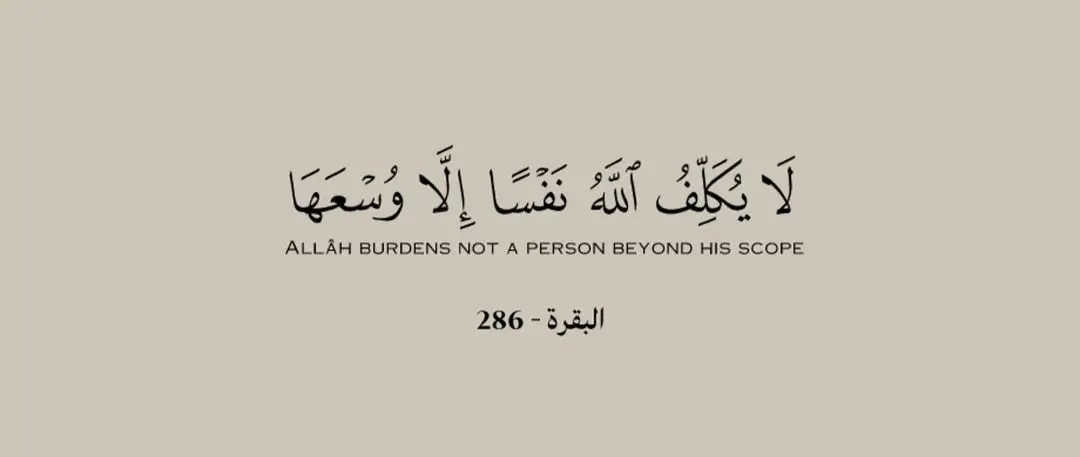 لَا يُكَلِّفُ ٱللَّهُ نَفْسًا إِلَّا وُسْعَهَا
ALLÂH BURDENS NOT A PERSON BEYOND HIS SCOPE
البقرة - 286